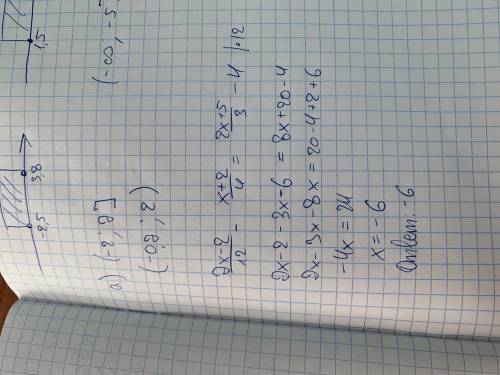 -2,5 3,8
1,5
а) (-2; 8]
(-∞; -5
(-∞; 2)
9x-2/12 - x+2/4 = 2x+5/3 - 4 |·12
9x-2-3x-6 = 8x+20-4
9x-3x-8x = 20-4+2+6
-4x = 24
x = -6
Ответ: -6